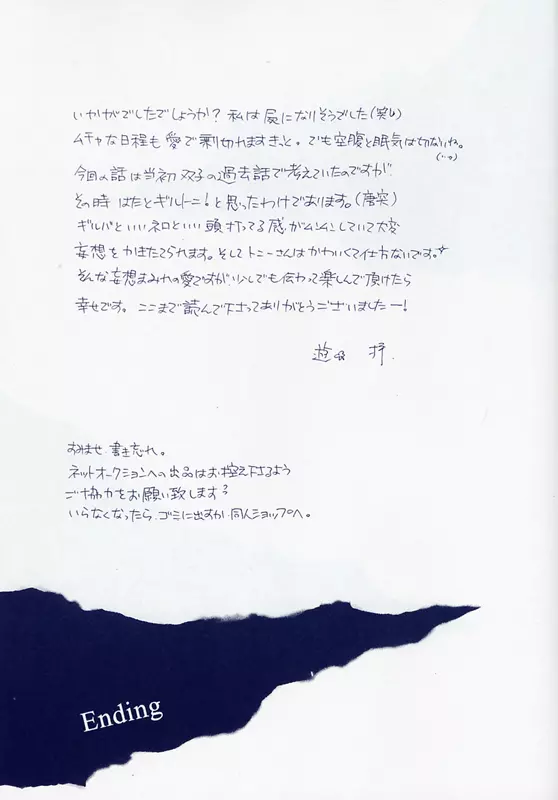 いかがでしたでしょうか？ 私は屍になりそうでした(笑)
ムチャな日程も愛で乗り切れますきっと。でも空腹と眠気は切ないね。
今回の話は当初 双子の過去話で考えていたのですが
その時 はたとギルトニ！と思ったわけであります。(唐突)
ギルバといいネロといい 頭打ってる感がムンムンしていて大変
妄想をかきたてられます。そしてトニーさんはかわいくて仕方ないです。
そんな妄想まみれの愛ですが、少しでも伝わって楽しんで頂けたら
幸せです。ここまで読んで下さってありがとうございましたー！
すみませ、書き忘れ。
ネットオークションへの出品はお控え下さるよう
ご協力をお願い致します
いらなくなったら、ゴミに出すか、同人ショップへ。
Ending